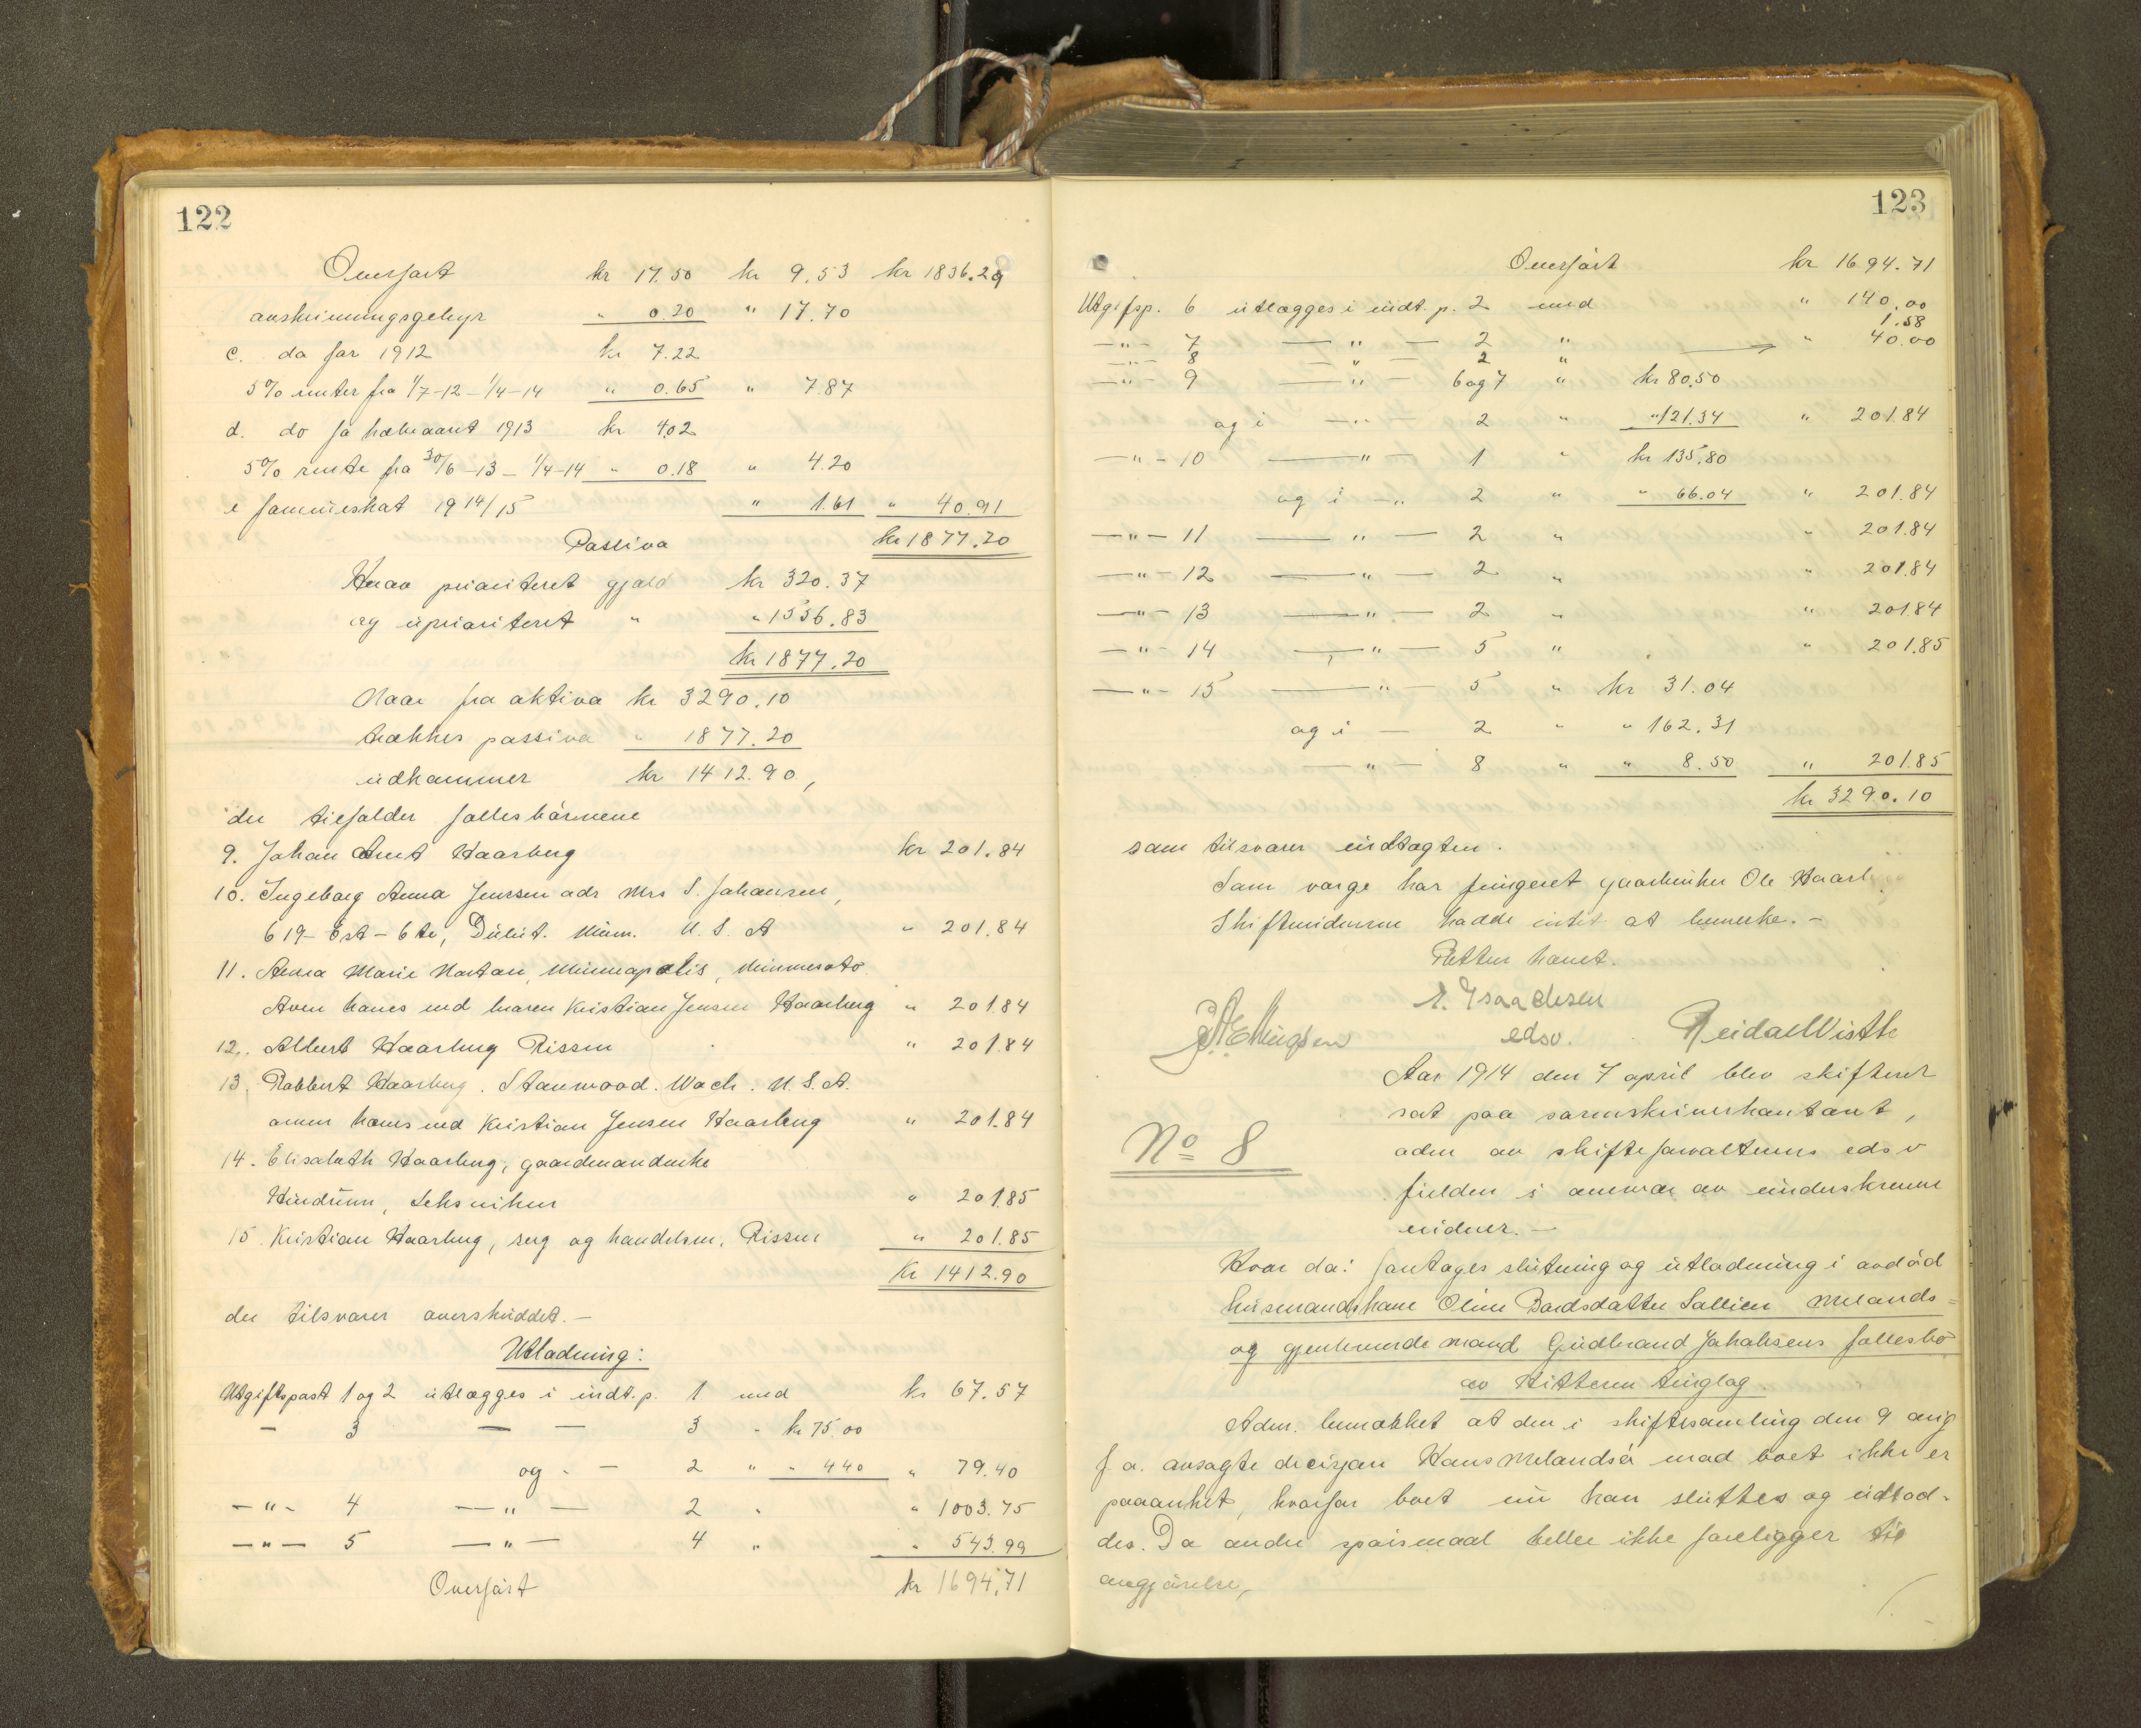 122
Overført kr 17.50 kr 9.53 kr 1836.29
avskrivningsgebyr " 0.20 " 17.70
c. do for 1912 kr 7.22
5% renter fra 1/7-12 - 1/4-14 " 0.65 " 7.87
d. do fo halvaaret 1913 kr 4.02
5% rente fra 30/6-13 - 1/4-14 " 0.18 " 4.20
e formueskat 1914/15 " 1.61 " 40.91
Passiva kr 1877.20
Hvav prioriteret gjæld kr 320.37
og uprioriteret " " 1556.83
kr 1877.20
Naar fra aktiva kr 3290.10
trækkes passiva " 1877.20
udkommer kr 1412.90,
der tilfalder fællesbørnene
9. Johan Arnt Haarberg kr 201.84
10. Ingeborg Anna Jenssen adr Mrs S. Johansen,
619 - Est - 6 te, Dulut. Minn. U. S. A " 201.84
11. Anna Marie Morton, Minneapolis, Minnesoto
Aven haves ved broren Kristian Jensen Haarberg " 201.84
12. Albert Haarberg Rissen " 201.84
13. Robbert Haarberg. Stanwood. Wach. U. S. A.
arven haves ved Kristian Jensen Haarberg " 201.84
14. Elisabeth Haarberg, gaardmandenke
Hindrum, Seksniken " 201.85
15. Kristian Haarberg, serg og handelsm. Rissen " 201.85
Kr 1412.90
der tilsvarer overskuddet. -
Utlodning:
Utgiftspost 1 og 2 utlægges i indt. p. 1 med kr 67.57
- 3 - - 3 " kr 75.00
og " - 2 " " 4.40 " 79.40
- " - 4 - " - 2 " " 1003.75
- " - 5 - " - 4 " " 543.99
Overført kr 1694.71
123
Overført kr 1694.71
Utgifsp. 6 utlægges i indt. p. 2 med " 140.00
1.58
- " - 7 - " - 2 " " 40.00
- " - 8 - " - 2 "
- " - 9 - " - 6 og 7 " kr 80.50
og i - " - 2 " " 121.34 " 201.84
- " - 10 - " - 1 " kr 135.80
og i - " 2 " " 66.04 " 201.84
- " - 11 - " - 2 " " 201.84
- " - 12 - " - 2 " " 201.84
- " - 13 - " - 2 " " 201.84
- " - 14 - " - 5 " " 201.85
- " - 15 - " - 5 " kr 31.04
og i - 2 " " 162.31
- " - 8 " " 8.50 " 201.85
kr 3290.10
som tilsvarer indtægten.
Som værge har fungeret gaarbruker Ole Haarb.
Skiftevidnerne hadde intet at bemerke. -
Retten hævet.
E. Isaachsen
J. A. Ellingsen edsv. Reidar Wisth
Aar 1914 den 7 april blev skifteret
sat paa sorenskriverkontoret,
adm av skifteforvalterens edsv
fuldm i overvær av underskrevne
vidner. -
No 8
Hvor da: foretages slutning og utlodning i avdød
husmandskone Oline Bardsdatter Sællien Melands-
og gjenlevende mand Gudbrand Johansens fællesbo
av Hitteren tinglag.
Adm. bemerket at den i skiftesamling den 9 aug
f a. avsagte decisjon Hans Melandsø mod boet ikke er
paaanket, hvorfor boet nu kan sluttes og udlod-
des. Da andre spørsmaal heller ikke foreligger til
avgjørelse,